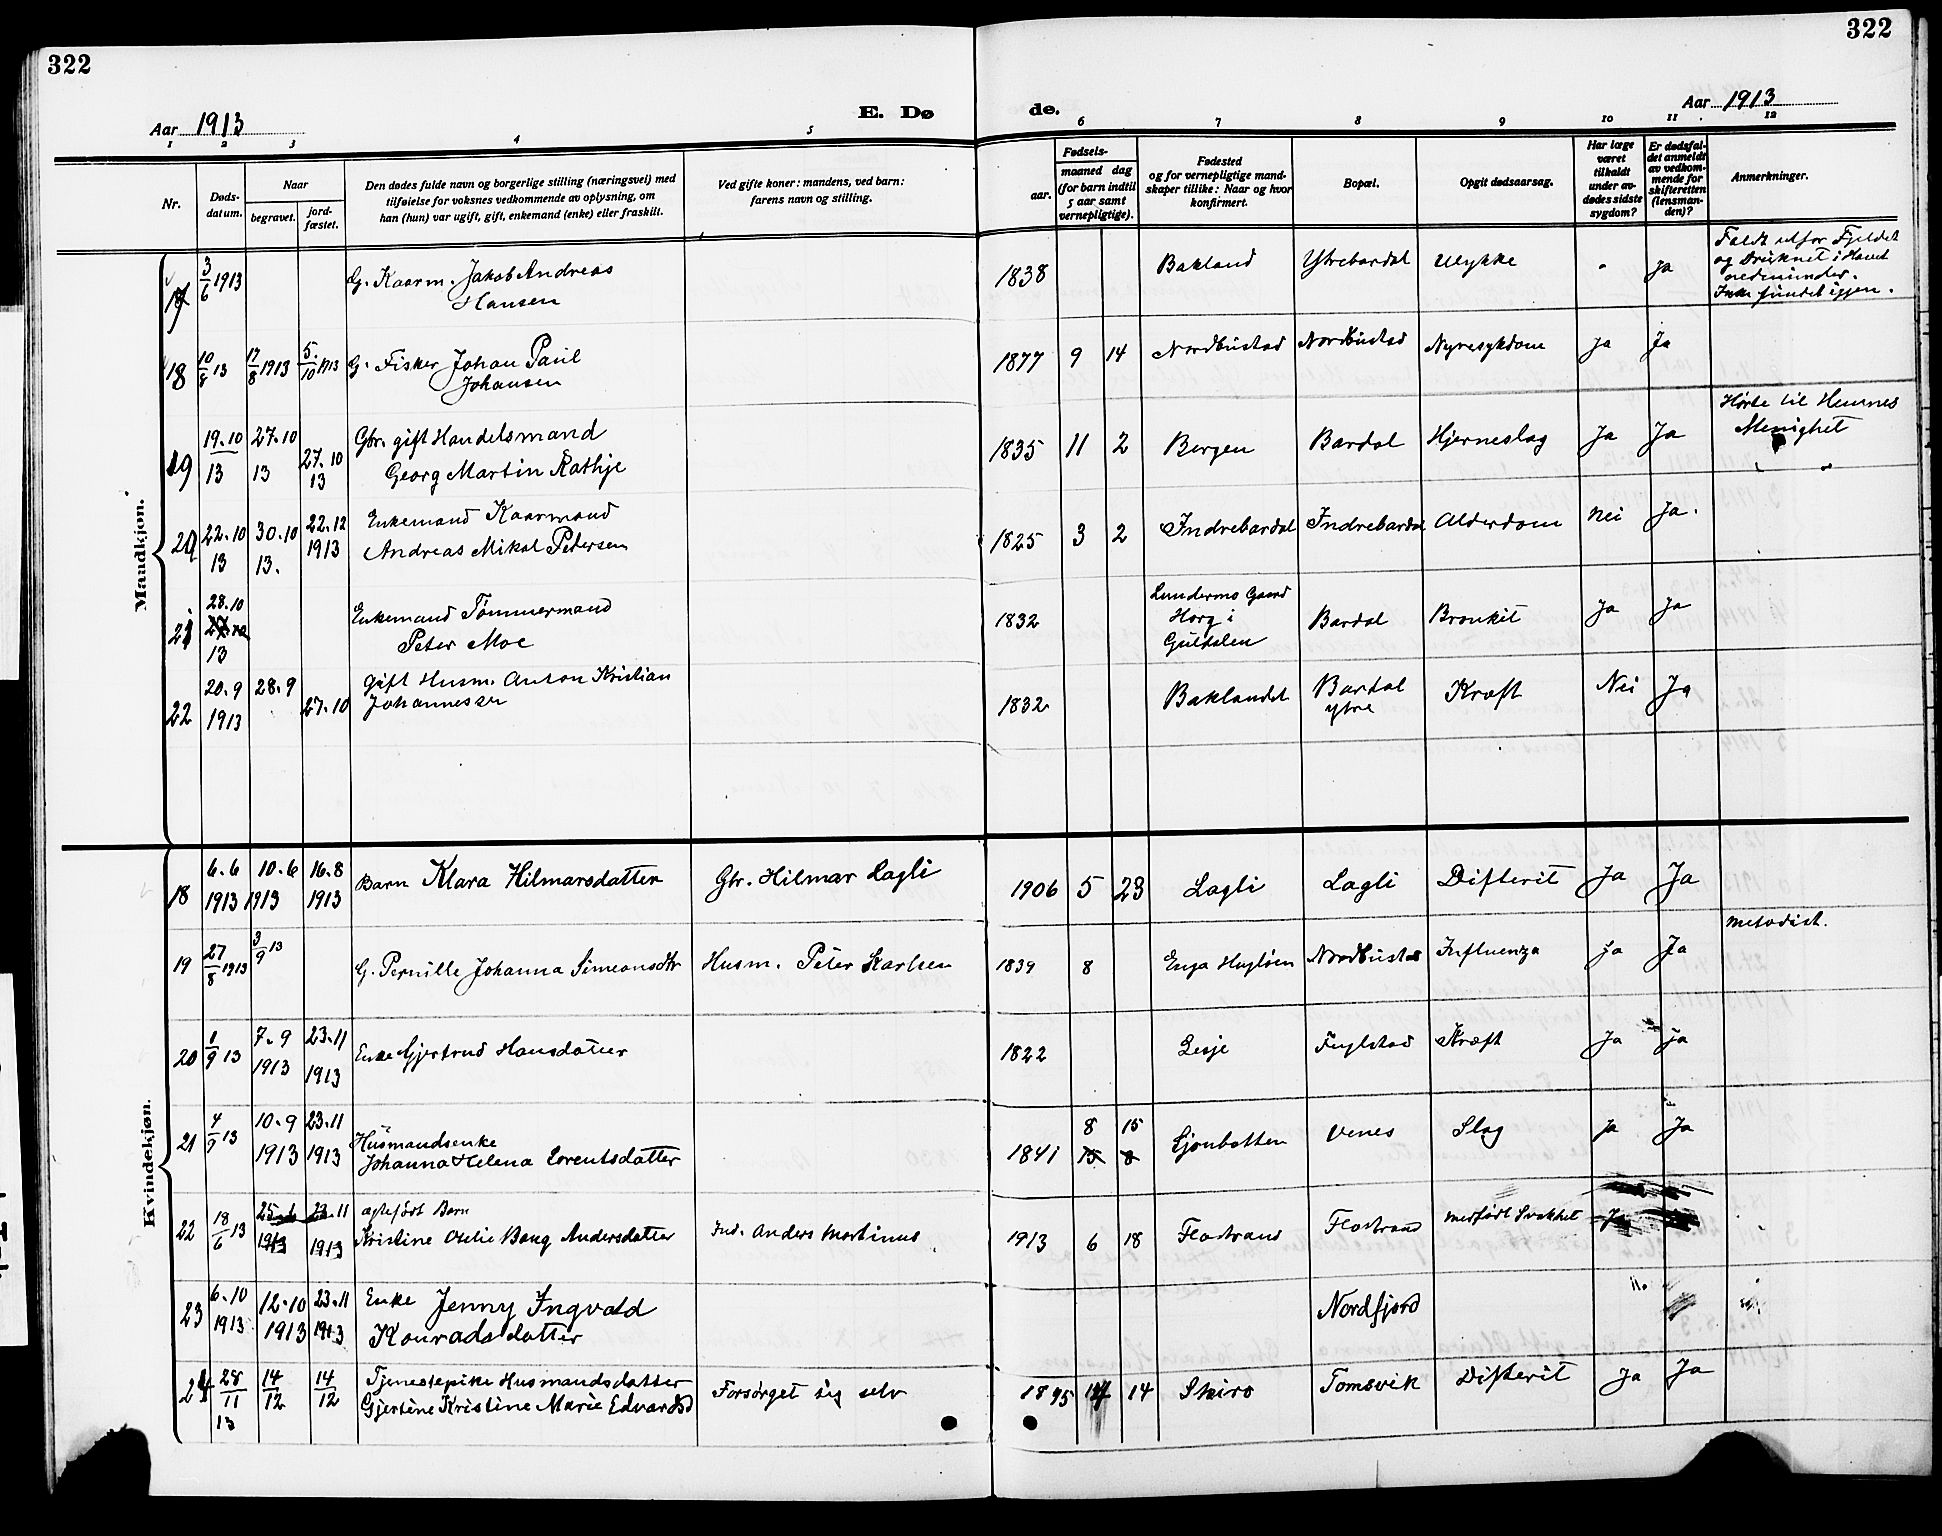 322
322
Aar 1913
E. Dø
de.
Aar 1913
1 2 3 4 5
6 7 8 9 10 11 12
Nr.
Døds-
datum.
Naar
begravet.
jord-
fæstet.
Den dødes fulde navn og borgerlige stilling (næringsvei) med
tilføielse for voksnes vedkommende av oplysning, om
han (hun) var ugift, gift, enkemand (enke) eller fraskilt.
Ved gifte koner: mandens, ved barn:
farens navn og stilling.
Fødsels-
aar.
maaned dag
(for barn indtil
5 aar samt
vernepligtige).
Fødested
og for vernepligtige mand-
skaper tillike: Naar og hvor
konfirmert.
Bopæl.
Opgit dødsaarsag.
Har læge
været
tilkaldt
under av-
dødes sidste
sygdom?
Er dødsfal-
det anmeldt
av vedkom-
mende for
skifteretten
(lensman-
den)?
Anmerkninger.
Mandkjøn.
17 3/6 1913 G. Kaarm. Jakob Andreas
Hansen
1838 Bakland Ytrebardal Ulykke - ja
Faldt utfor Fjeldet
og Druknet i Havet
nedenunder.
Ikke fundet igjen.
18 10/8 13 17/8 1913 5/10 1913 G. Fisker Johan Paul
Johansen
1877 9 14 Nordbustad Nordbustad Nyresykdom ja Ja
19 19.10 13 27.10 13 27.10 13 Gbr. gift Handelsmand
Georg Martin Rathje
1835 11 2 Bergen Bardal Hjerneslag Ja Ja
Hørte til Hemnes
Menighet
20 22.10 13 30.10 13. 22.12 1913 Enkemand Kaarmand
Andreas Mikal Pedersen
1825 3 2 Indrebardal Indrebardal Alderdom Nei Ja.
21 28.10 13 Enkemand Tømmermand
Peter Moe
1832 Lundermo Gaard
Horg i
Guldalen
Bardal Bronkit Ja Ja
22 20.9 1913 28.9 27.10 gift Husm. Anton Kristian
Johannessen
1832 Baklandet Bardal
ytre
Kræft Nei Ja
Kvindekjøn.
18 6.6 1913 10.6 1913 16.8 1913 Barn Klara Hilmarsdatter Gbr. Hilmar Lagli
1906 5 23 Lagli Lagli Difterit Ja Ja
19 27/8 1913 3/9 13 G. Pernille Johanna Simeonsdtr Husm. Peter Karlsen
1839 8 Enga Hugløen Nordbustad Influenza ja Ja
Metodist.
20 1/9 13 7.9 1913 23.11 1913 Enke Gjertrud Hansdatter
1822 Lesje Fuglstad Kræft Ja ja
21 4/9 13 10.9 1913 23.11 1913 Husmandsenke
Johanna Helena Lorentsdatter
1841 8 15 Sjonbotten Venes Slag ja Ja
22 18/6 13 25.6 1913 23.11 1913 ægtefødt Barn
Kristine Otelie Bang Andersdatter Ind. Anders Martinus
1913 6 18 Flostrand Flostrand medfødt Svakhet Ja
23 6.10 1913 12.10 1913 23.11 1913 Enke Jenny Ingvald
Konradsdatter
Nordfjord
24 28/11 13 14/12 14/12 Tjenestepike Husmandsdatter
Gjertine Kristine Marie Edvardsd Forsørget sig selv
1895 14 Skiro Tomsvik Difterit Ja Ja